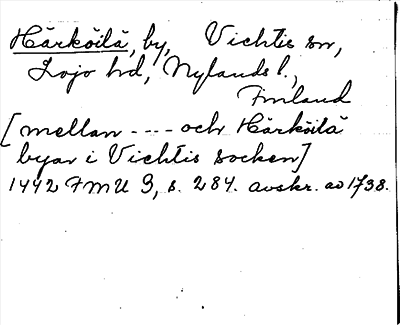 Härköilä, by, Vichtis sn,
Lojo hd, Nylands l.,
Finland
[mellan ---- och Härköilä
byar i Vichtis socken]
1442 FMU 3, s. 284. avskr. av 1738.